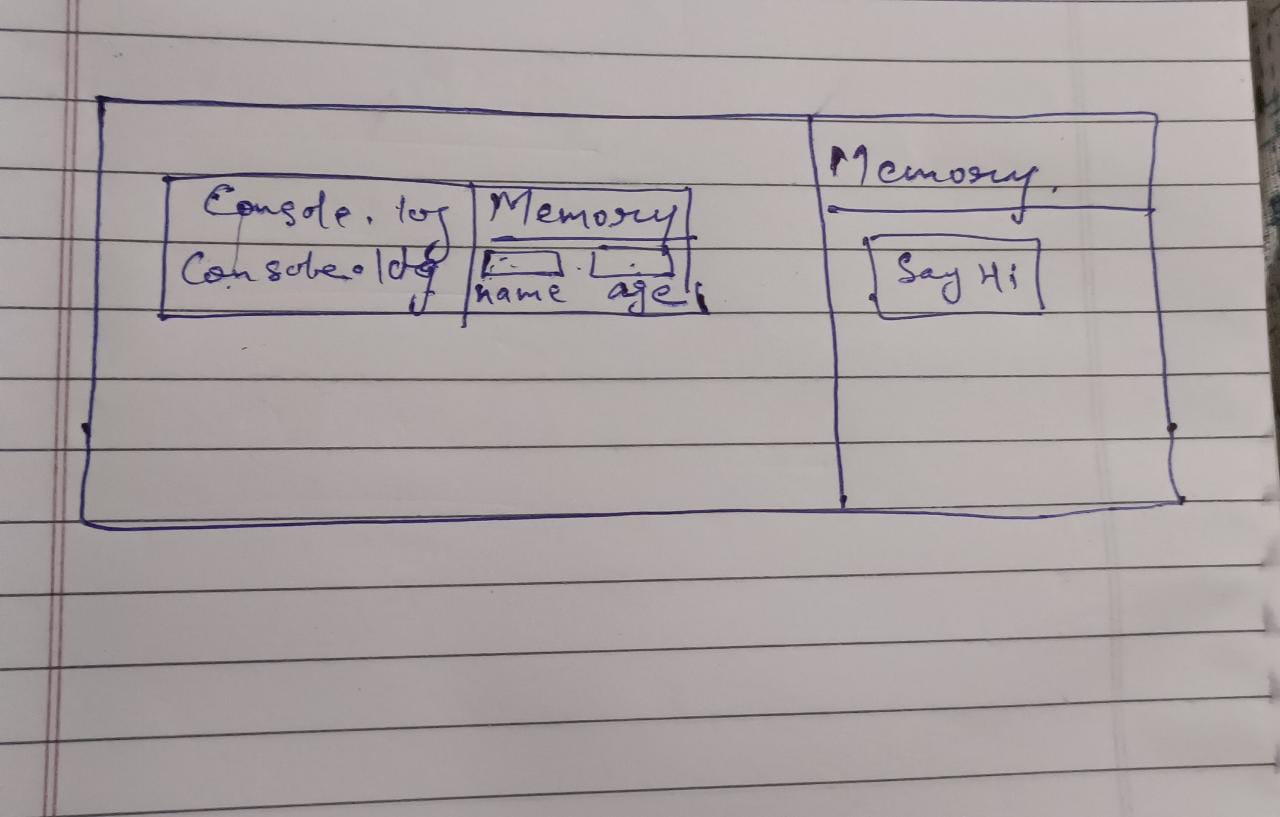 Console.log
Console.log
Memory
name age
Memory.
Say Hi